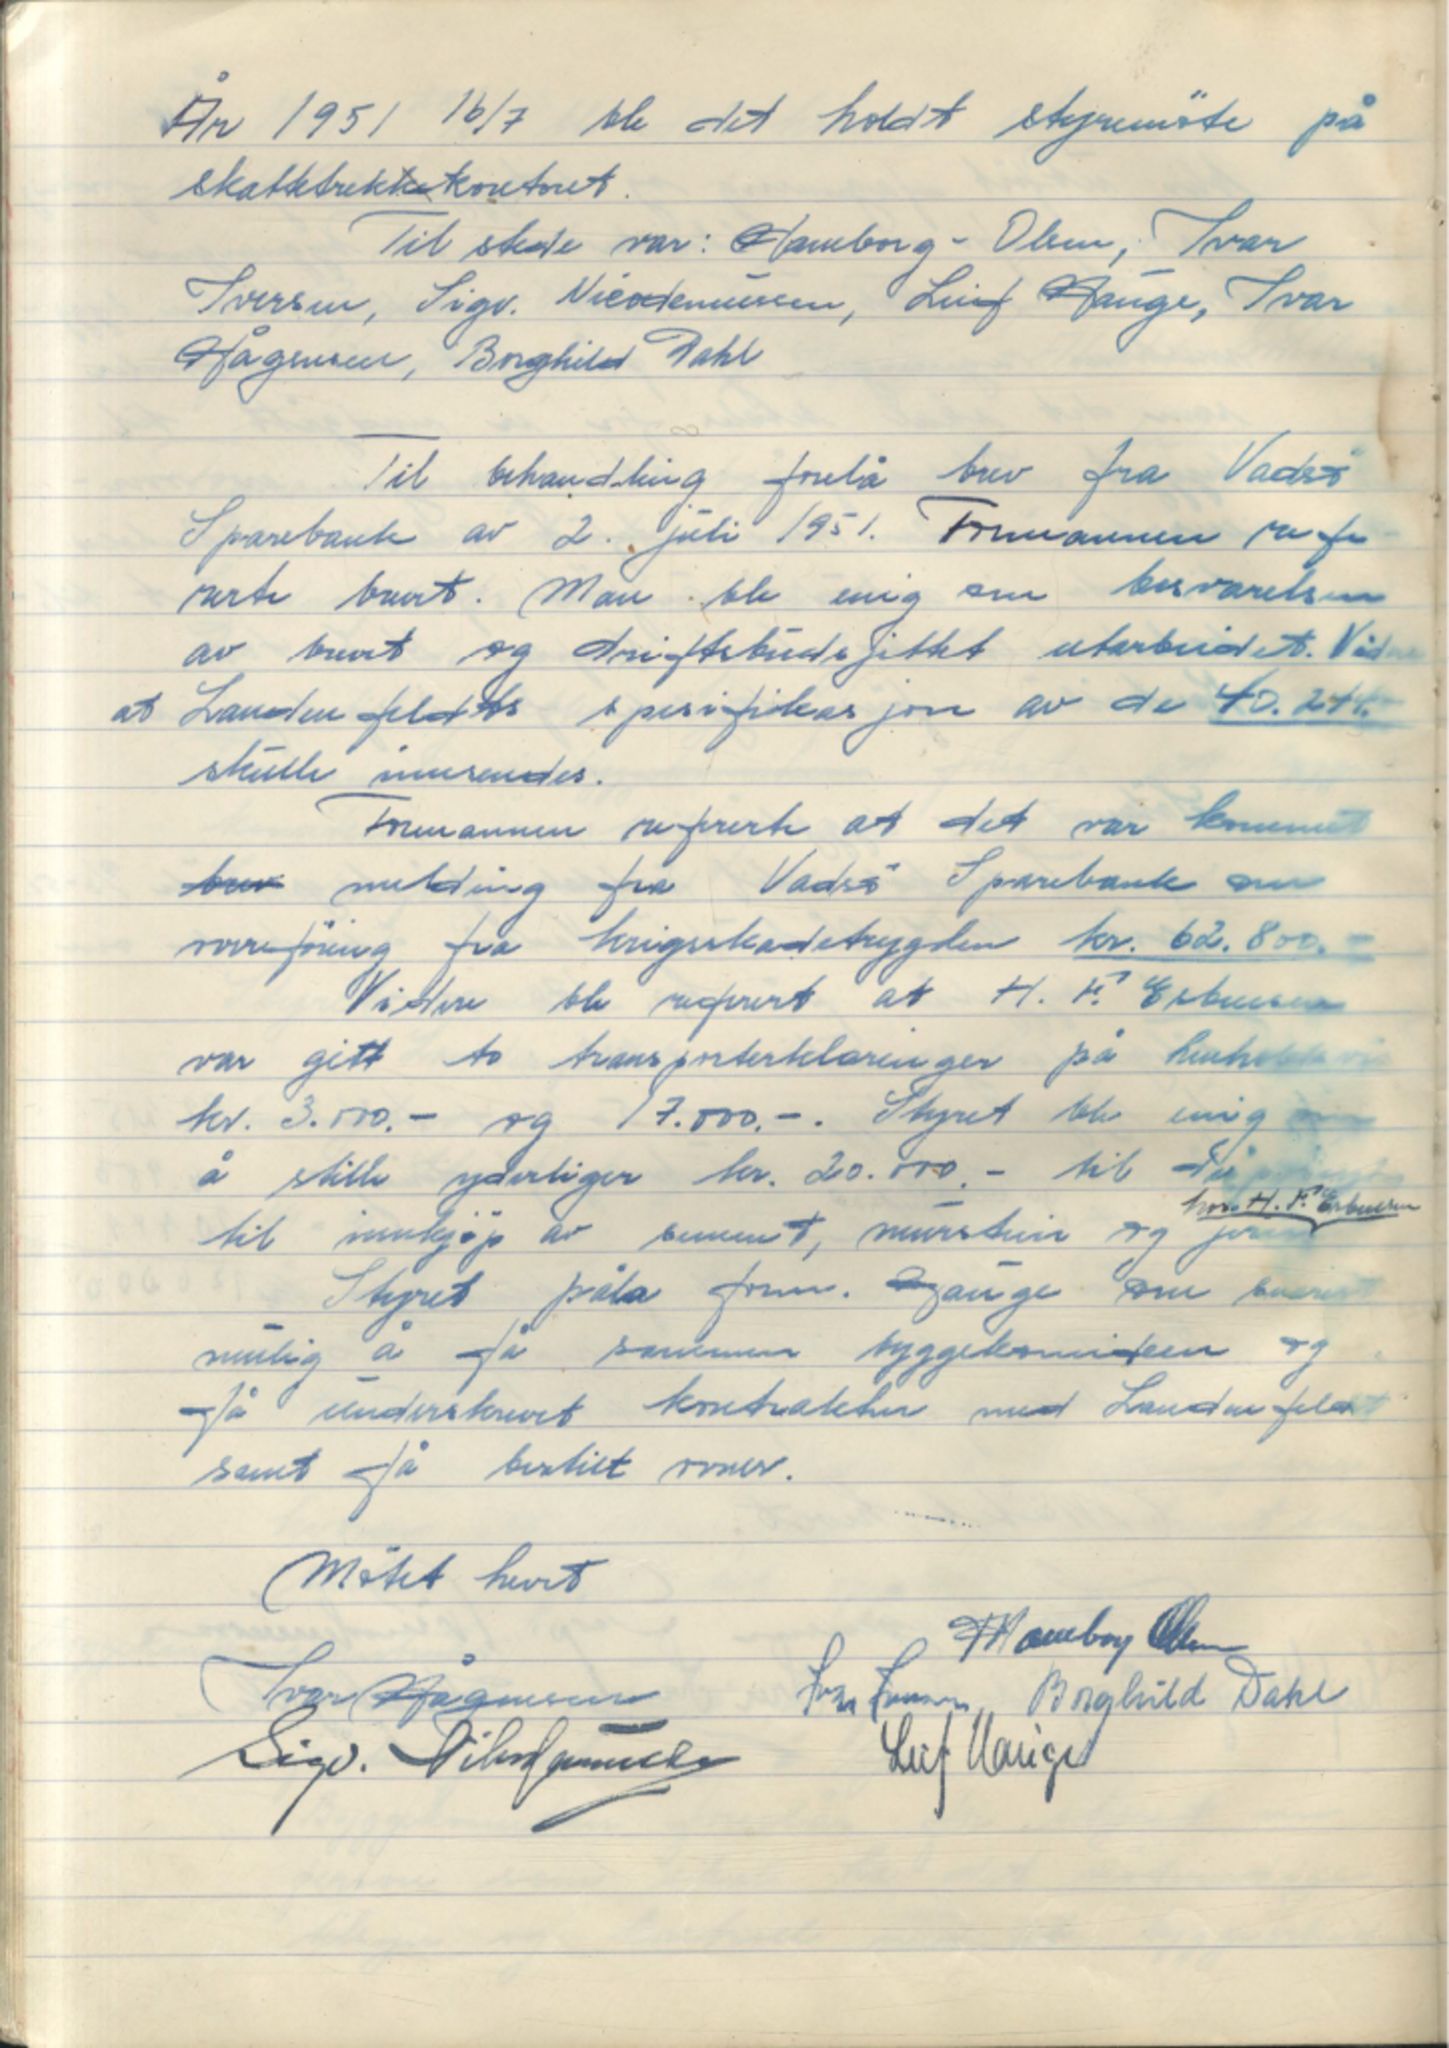 År 1951 16/7 ble det holdt styremöte på
skattetrekkekontoret.
Til stede var: Hamborg-Olsen, Ivar
Iversen, Sigv. Nicodemussen, Leif Hauge, Ivar
Hågensen, Borghild Dahl
Til behandling forelå brev fra Vadsö
Sparebank av 2. juli 1951. Formannen refe-
rerte brevet. Man ble enig om besvarelsen
av brevet og driftsbudsjettet utarbeidet.
at Landenfeldts spesifikasjon av de
skulle innsendes.
Formannen refrerte at det var kommet
brev melding fra Vadsö Sparebank om
overföring fra krigsskadetrygden kr. 62.800.-
Videre ble refrert at H. F. Esbensen
var gitt to transporterklæringer på
kr. 3.000.- og 17.000.-. Styret ble enig om
å stille yderliger kr. 20.000.- til
hos H. F. Esbensen
til innkjøp av sement, murstein og jern
Styret påla form. Hauge om snarest
mulig å få sammen byggekomiteen og
få underskrevet kontrakter med Landenfeldt
samt få bestilt ovner.
Mötet hevet
Hamborg Olsen
Ivar Hågensen Borghild Dahl
Sigv. Nikodemussen Leif Hauge